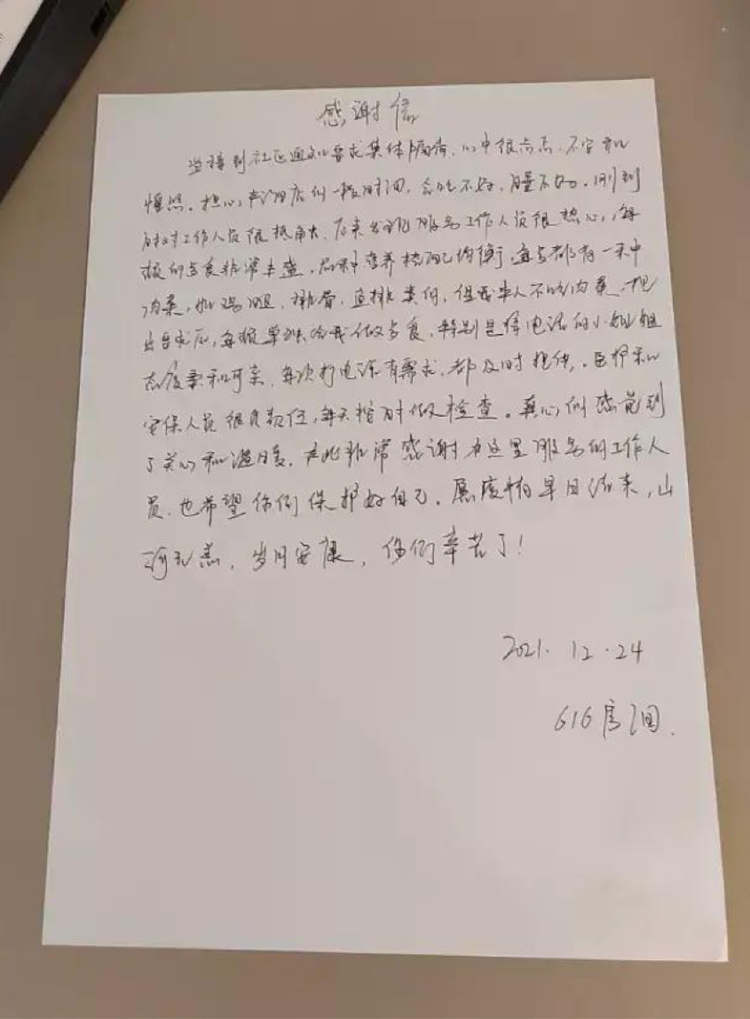 感谢信
当接到社区通知要求集体隔离，心中很忐忑、不安和
惶恐。担心在酒店的一段时间，会吃不好，睡不好。刚到
时对工作人员很抵触。后来发现服务工作人员很热心，每
顿的与食非常丰盛，品种营养搭配均衡，每与都有一荤中
肉菜，如鸡腿、排骨、鱼排类的，但我本人不吃肉菜，把
后，每顿单独给我做与食，特别是接电话的小姐姐
态度柔和可亲，每次打电话有需求，都及时提供，医护和
安保人员很负责任，每天按时做检查。真心的感觉到
了关心和温暖，在此非常感谢在这里服务的工作人
员，也希望你们保护好自己。愿疫情早日结束，山
河无恙，岁月安康，你们辛苦了！
2021.12.24
616房间.